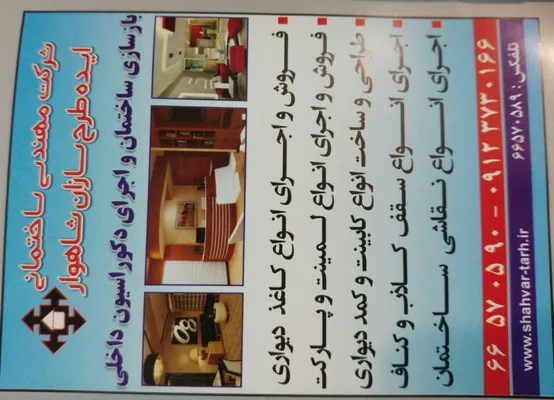 شرکت مهندسی ساختمانی
ایده طرح سازان شاهوار
بازسازی ساختمان و اجرای دکوراسیون داخلی
فروش و اجرای انواع کاغذ دیواری
فروش و اجرای انواع لمینت و پارکت
طراحی و ساخت انواع کابینت و کمد دیواری
اجرای انواع سقف کاذب و کناف
اجرای انواع نقاشی ساختمان
۶۶ ۵۷ ۰۵ ۹۰ - ۰۹۱۲ ۳۷۳ ۰۱ ۶۶
www.shahvar-tarh.ir
تلفکس: ۶۶۵۷۰۵۸۹